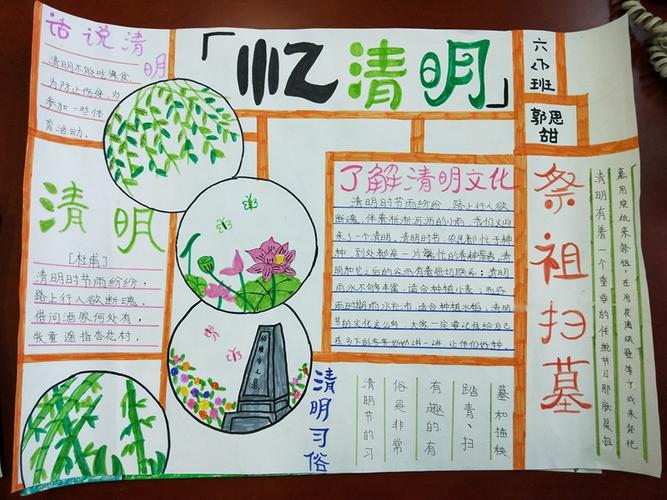 「忆清明」
六
班
郭思
甜
话说清
明
为防止伤身,
参加一些体
育活动。
清明
[杜甫]
清明时节雨纷纷,
路上行人欲断魂。
借问酒家何处有,
牧童遥指杏花村。
了解清明文化
清明时节雨纷纷,路上行人欲
断魂,伴着淅淅沥沥的小雨,我们又迎
来了一个清明,清明时节,农民都忙于种
种,到处都是一片繁忙的春种景象,清
明和它之后的谷雨有着密切联系:清明
雨水不够丰富,适合种植小麦,而谷
雨时期雨水充沛,适合种植水稻,清明
节的文化这么多,大家一定要记住给自己
在乡下的爷爷奶奶讲一讲,让他们好种。
清明习俗
清明节的习
俗是非常
有趣的有
踏青、扫
墓和插秧
祭祖扫墓
清明有着一个重要的传统节日那就是扫
墓用烧纸来祭祖,在